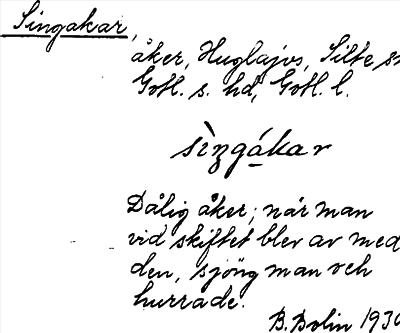 Singakar,
åker, Huglajvs, Silte sn
Gotl. s. hd, Gotl. l.
Dålig åker; när man
vid skiftet blev av med
den, sjöng man och
hurrade.
B. Bolin